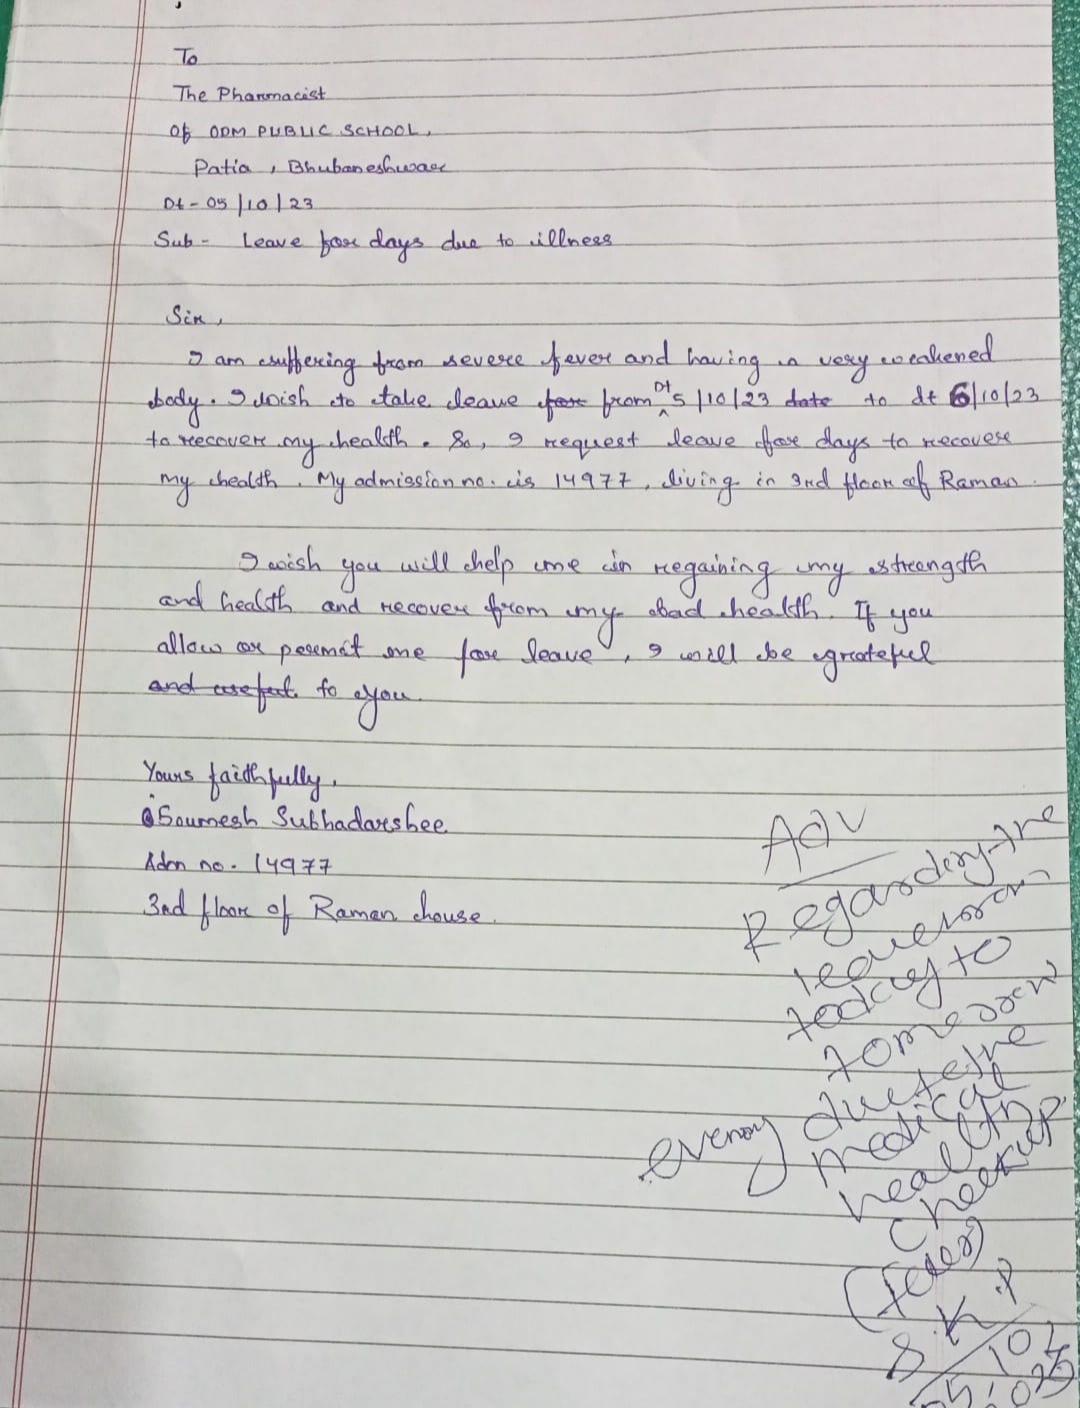 To
The Pharmacist
Of ODM PUBLIC SCHOOL,
Patia, Bhubaneshwar
Dt - 05/10/23
Sub - Leave for days due to illness
Sir,
I am suffering from severe fever and having a very weakened
body. I wish to take leave for from Dt 5/10/23 date to dt 6/10/23
to recover my health. So, I request leave for days to recover
my health. My admission no. is 14977, living in 3rd floor of Raman.
I wish you will help me in regaining my strength
and health and recover from my bad health. If you
allow or permit me for leave, I will be grateful
and to you.
Yours faithfully,
Soumesh Subhadarshee
Adm no. - 14977
3rd floor of Raman house.
Adv
Regarding the
leave from
today to
tomorrow
evening due to the
medical
health
checkup
(fever)
S.K.P